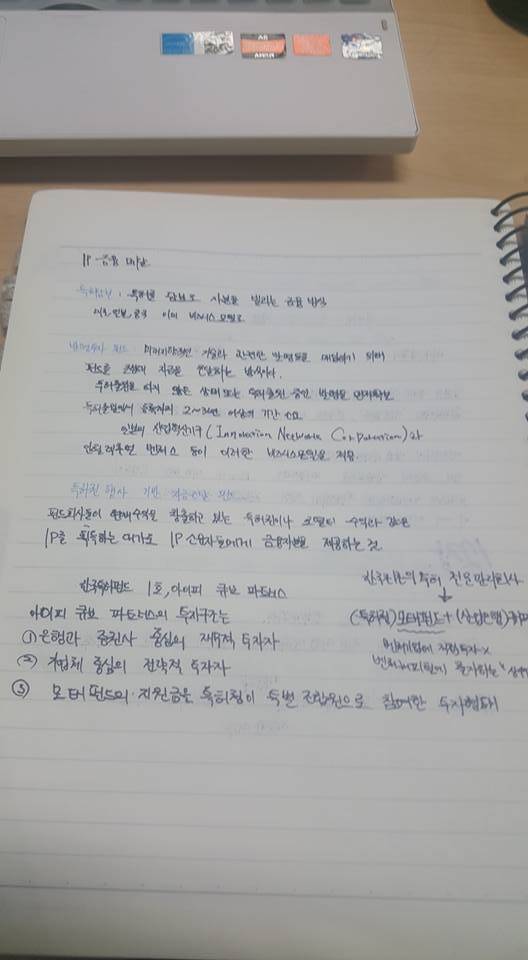 IP 금융
특허담보 : 특허를 담보로 자본을 빌리는 금융 방식
비즈니스모델로
발명투자 펀드 : 기술과 관련한 발명들을 매입하기 위해
펀드를 조성해 자금을 조달하는 방식이다.
특허출원을 하지 않은 상태 또는 특허출원 중인 발명을
특허출원에서 등록까지 2~3년 이상의 기간 소요
일본의 산업혁신기구 (Innovation Network Corporation)와
인텔렉추얼 벤처스 등이 이러한 비즈니스모델을 적용
특허권 행사 기반 자금조달 펀드
펀드회사들이 현재수익을 창출하고 있는 특허권이나 로열티 수익과 같은
IP를 획득하는 대가로 IP 소유자들에게 금융자본을 제공하는 것
한국특허펀드 1호, 아이피 큐브 파트너스
아이피 큐브 파트너스의 투자구조는
① 은행과 증권사 중심의 재무적 투자자
② 기업체 중심의 전략적 투자자
③ 모태펀드의 지원금은 특허청이 특별 조합원으로 참여한 투자형태
특허 전문관리회사
(특허청) 모태펀드 + (산업은행)
벤처기업에 직접투자 X